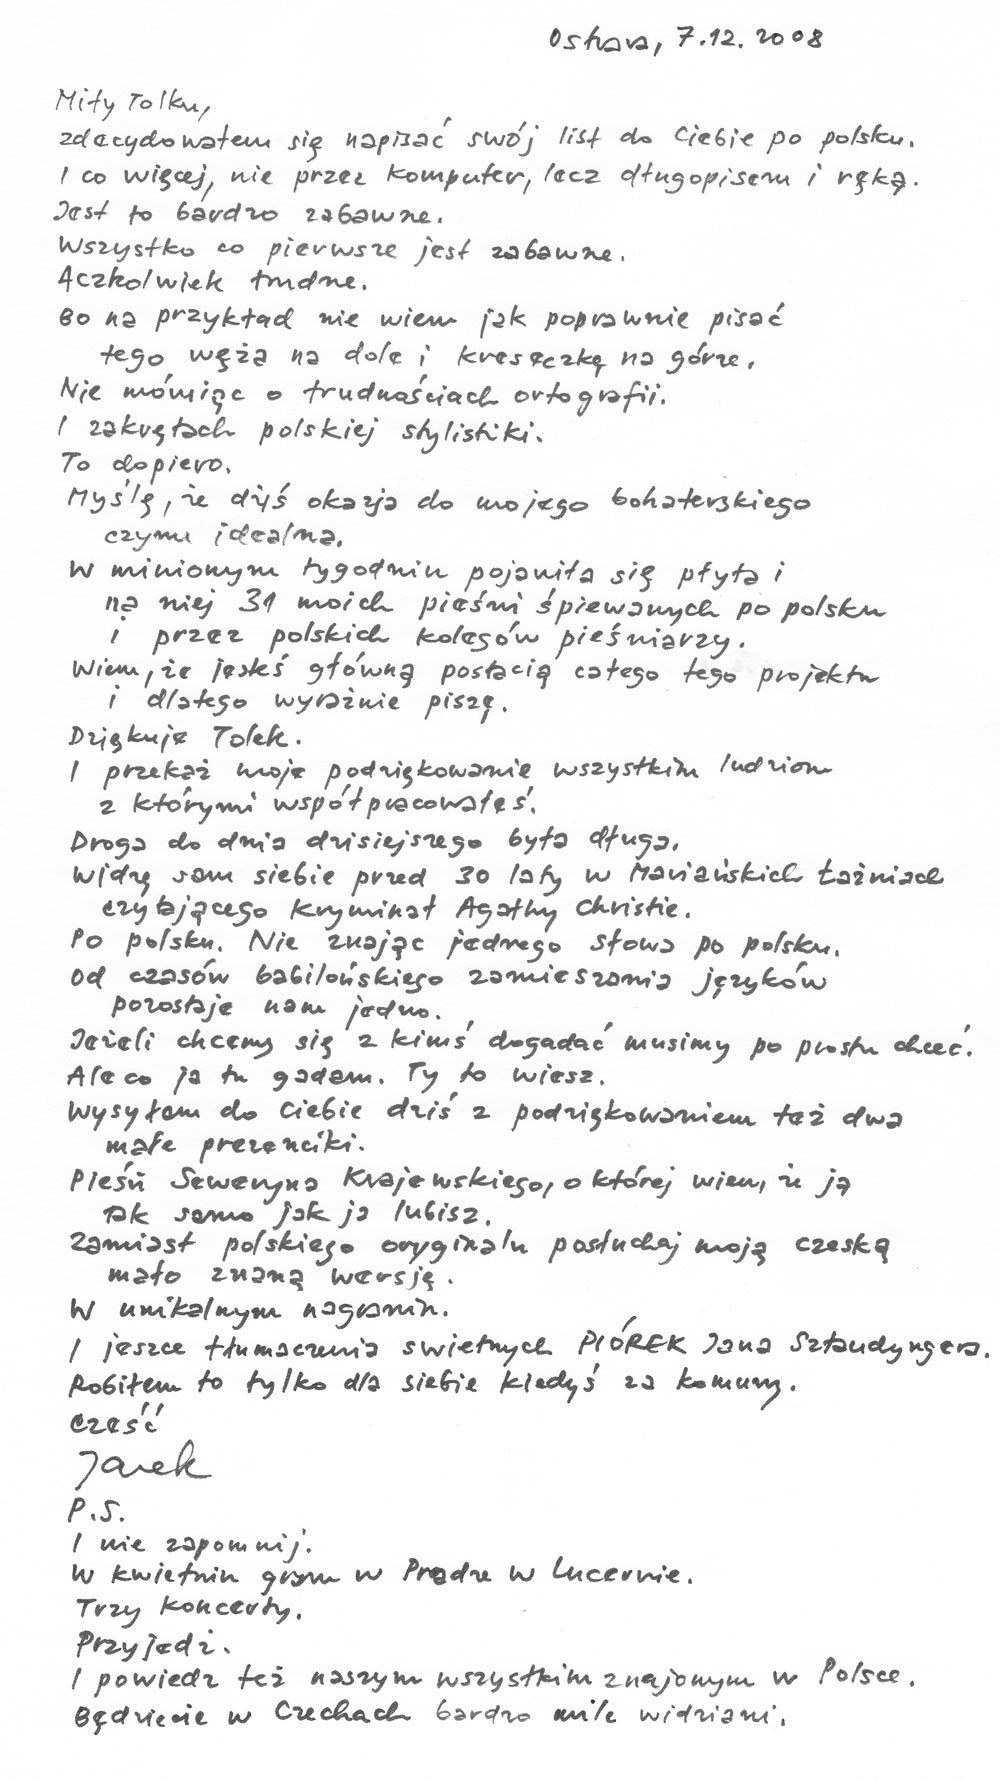 Ostrava, 7.12.2008
Miły Tolku,
zdecydowałem się napisać swój list do Ciebie po polsku.
I co więcej, nie przez komputer, lecz długopisem i ręką.
Jest to bardzo zabawne.
Wszystko co pierwsze jest zabawne.
Aczkolwiek trudne.
Bo na przykład nie wiem jak poprawnie pisać
tego węża na dole i kreseczkę na górze.
Nie mówiąc o trudnościach ortografii.
I zakrętach polskiej stylistiki.
To dopiero.
Myślę, że dziś okazja do mojego bohaterskiego
czynu idealna.
W minionym tygodniu pojawiła się płyta i
na niej 31 moich pieśni śpiewanych po polsku
i przez polskich kolegów pieśniarzy.
Wiem, że jesteś główną postacią całego tego projektu
i dlatego wyraźnie piszę.
Dziękuję Tolek.
I przekaż moje podziękowanie wszystkim ludziom
z którymi współpracowałeś.
Droga do dnia dzisiejszego była długa.
Widzę sam siebie przed 30 laty w Mariańskich Łaźniach
czytającego kryminał Agathy Christie.
Po polsku. Nie znając jednego słowa po polsku.
Od czasów babilońskiego zamieszania języków
pozostaje nam jedno.
Jeżeli chcemy się z kimś dogadać musimy po prostu chcieć.
Ale co ja tu gadam. Ty to wiesz.
Wysyłam do Ciebie dziś z podziękowaniem też dwa
małe prezenciki.
Pieśń Seweryna Krajewskiego, o której wiem, że ją
tak samo jak ja lubisz.
Zamiast polskiego oryginału posłuchaj moją czeską
mało znaną wersję.
W unikalnym nagraniu.
I jeszcze tłumaczenia swietnych PIÓREK Jana Sztaudyngera.
Robiłem to tylko dla siebie kiedyś za komuny.
Cześć
Jarek
P.S.
I nie zapomnij.
W kwietniu gram w Pradze w Lucernie.
Trzy koncerty.
Przyjedź.
I powiedz też naszym wszystkim znajomym w Polsce.
Będziecie w Czechach bardzo mile widziani.